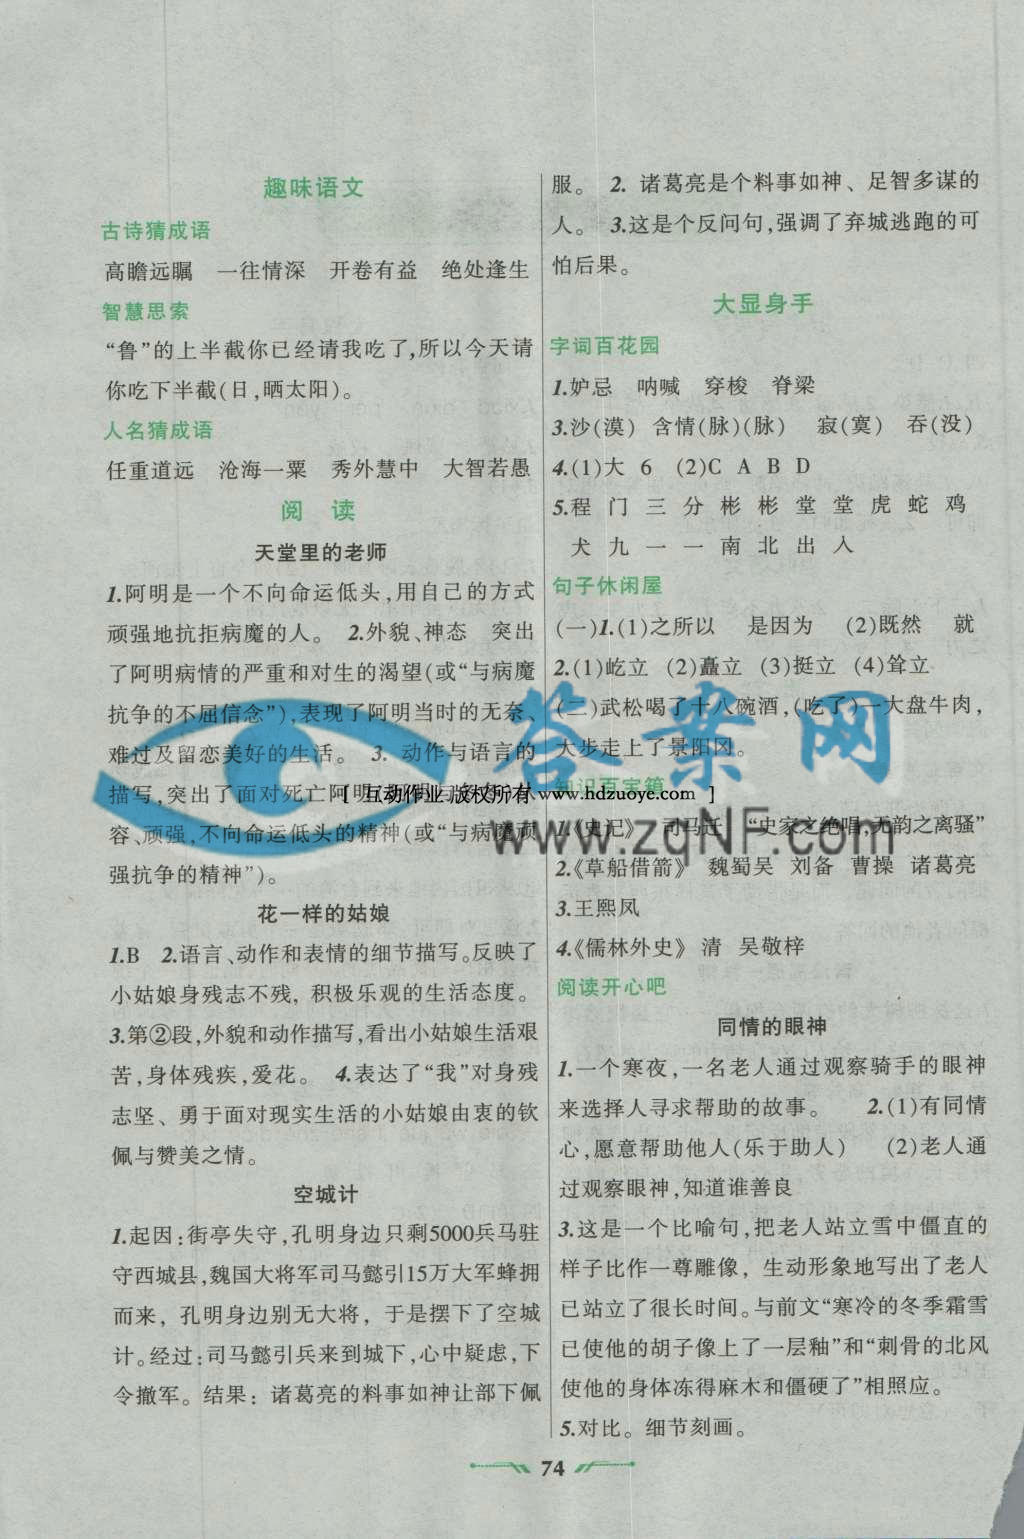 趣味语文
古诗猜成语
高瞻远瞩 一往情深 开卷有益 绝处逢生
智慧思索
“鲁”的上半截你已经请我吃了,所以今天请
你吃下半截(日,晒太阳)。
人名猜成语
任重道远 沧海一粟 秀外慧中 大智若愚
阅 读
天堂里的老师
1.阿明是一个不向命运低头,用自己的方式
顽强地抗拒病魔的人。 2.外貌、神态 突出
了阿明病情的严重和对生的渴望(或“与病魔
抗争的不屈信念”),表现了阿明当时的无奈、
难过及留恋美好的生活。 3. 动作与语言的
描写,突出了面对死亡阿明
容、顽强,不向命运低头的精神(或“与病魔顽
强抗争的精神”)。
花一样的姑娘
1.B 2.语言、动作和表情的细节描写。反映了
小姑娘身残志不残, 积极乐观的生活态度。
3.第②段,外貌和动作描写,看出小姑娘生活艰
苦,身体残疾,爱花。 4.表达了“我”对身残
志坚、勇于面对现实生活的小姑娘由衷的钦
佩与赞美之情。
空城计
1.起因:街亭失守,孔明身边只剩5000兵马驻
守西城县,魏国大将军司马懿引15万大军蜂拥
而来, 孔明身边别无大将, 于是摆下了空城
计。经过:司马懿引兵来到城下,心中疑虑,下
令撤军。结果: 诸葛亮的料事如神让部下佩
服。 2. 诸葛亮是个料事如神、足智多谋的
人。 3.这是个反问句,强调了弃城逃跑的可
怕后果。
大显身手
字词百花园
1.妒忌 呐喊 穿梭 脊梁
3.沙(漠) 含情(脉)(脉) 寂(寞) 吞(没)
4.(1)大 6 (2)C A B D
5.程 门 三 分 彬 彬 堂 堂 虎 蛇 鸡
犬 九 一 一 南 北 出 入
句子休闲屋
(一)1.(1)之所以 是因为 (2)既然 就
2.(1)屹立 (2)矗立 (3)挺立 (4)耸立
(二)武松喝了十八碗酒,(吃了)一大盘牛肉,
大步走上了景阳冈。
知识百宝箱
1.《史记》 司马迁 “史家之绝唱,无韵之离骚”
2.《草船借箭》 魏蜀吴 刘备 曹操 诸葛亮
3.王熙凤
4.《儒林外史》 清 吴敬梓
阅读开心吧
同情的眼神
1.一个寒夜,一名老人通过观察骑手的眼神
来选择人寻求帮助的故事。 2.(1)有同情
心,愿意帮助他人(乐于助人) (2)老人通
过观察眼神,知道谁善良
3.这是一个比喻句,把老人站立雪中僵直的
样子比作一尊雕像, 生动形象地写出了老人
已站立了很长时间。与前文“寒冷的冬季霜雪
已使他的胡子像上了一层釉”和“刺骨的北风
使他的身体冻得麻木和僵硬了”相照应。
5.对比。细节刻画。
74
[ 互动作业 版权所有 www.hdzuoye.com ]
答案网
www.zqNF.com